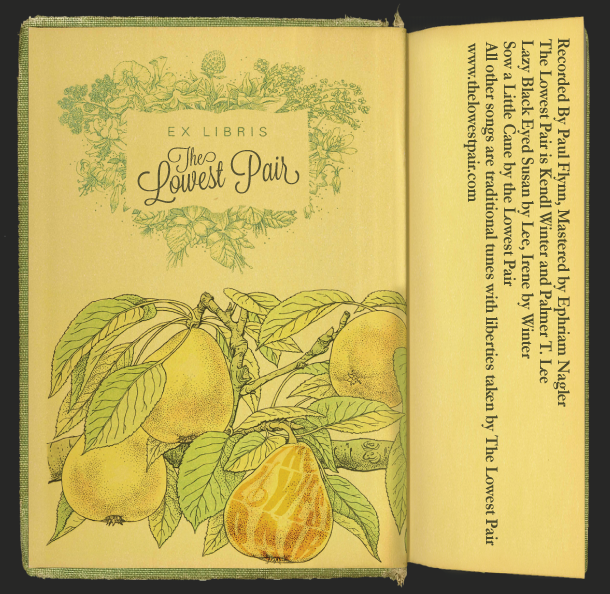 EX LIBRIS
The
Lowest Pair
Recorded By Paul Flynn, Mastered by Ephriam Nagler
The Lowest Pair is Kendl Winter and Palmer T. Lee
Lazy Black Eyed Susan by Lee, Irene by Winter
Sow a Little Cane by the Lowest Pair
All other songs are traditional tunes with liberties taken by The Lowest Pair
www.thelowestpair.com